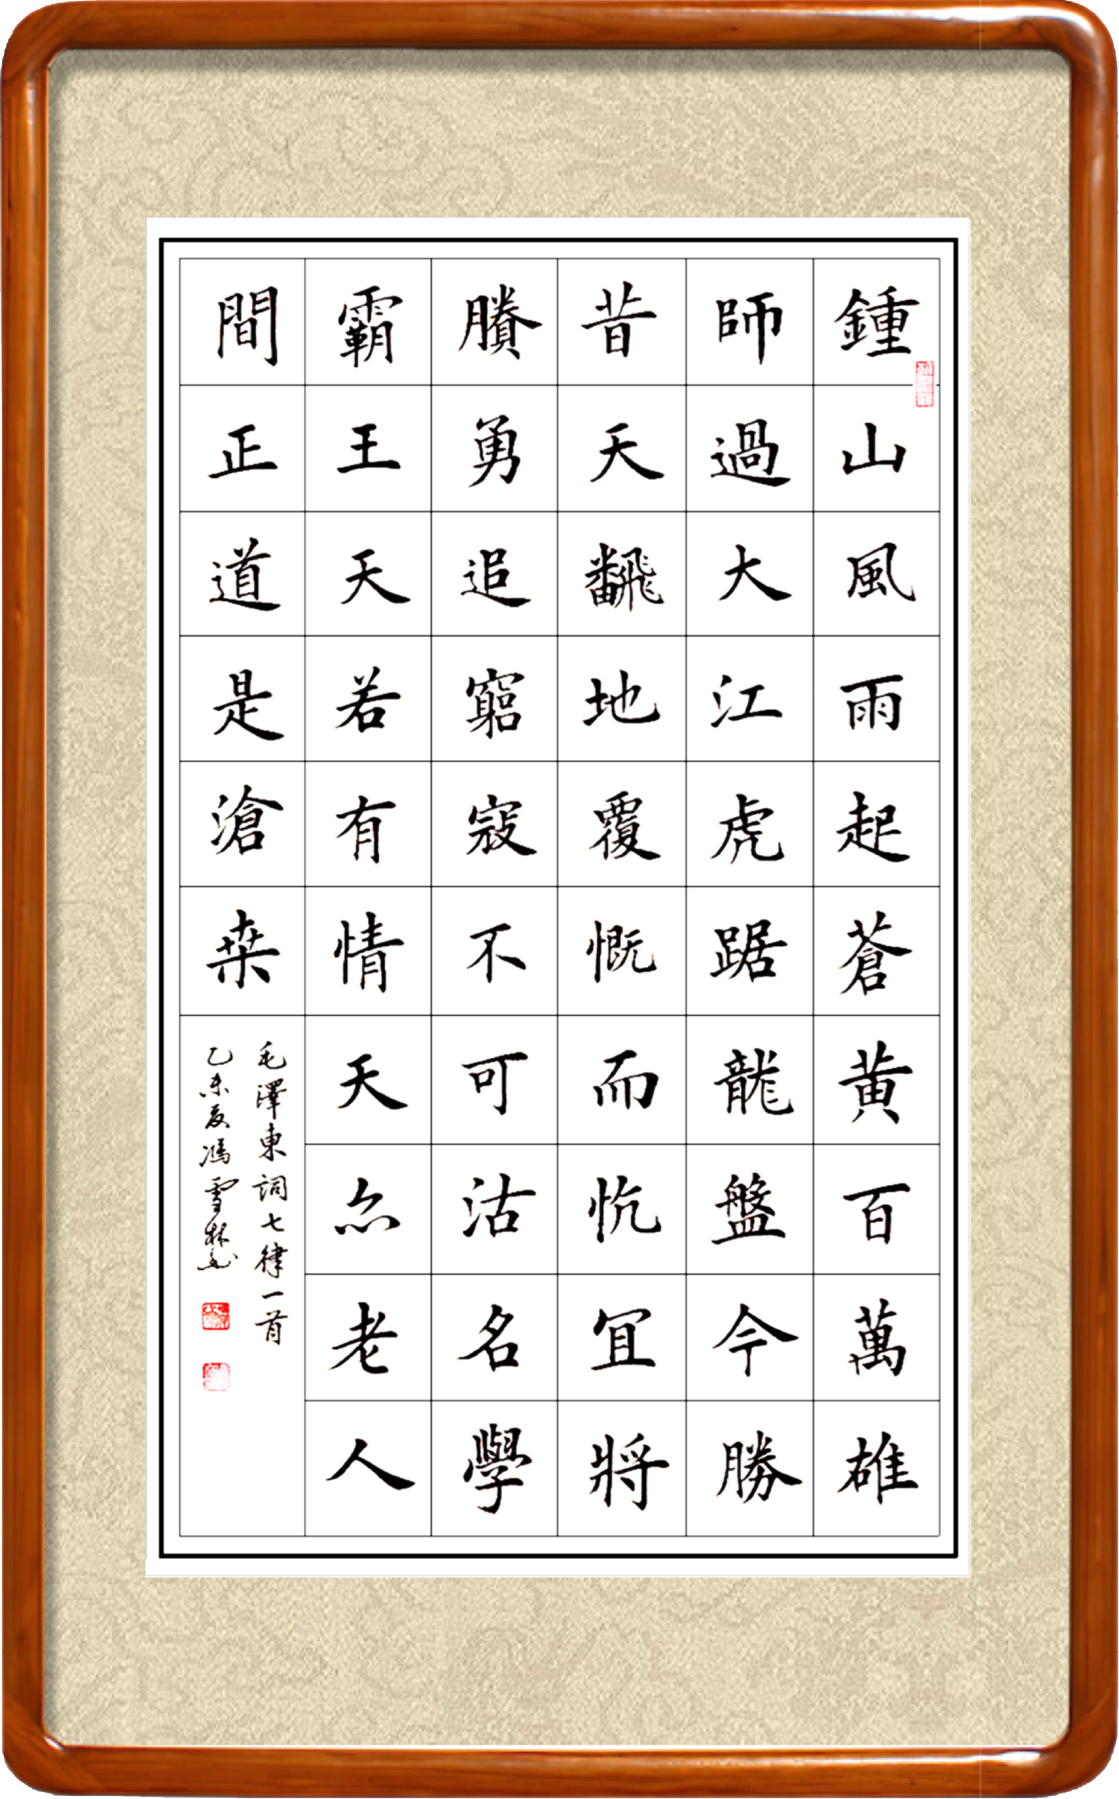 鍾山風雨起蒼黄百萬雄
師過大江虎踞龍盤今勝
昔天飜地覆慨而忼冝將
賸勇追窮寇不可沽名學
霸王天若有情天亦老人
間正道是滄桒
毛澤東詞七律一首
乙未夏馮雪林書